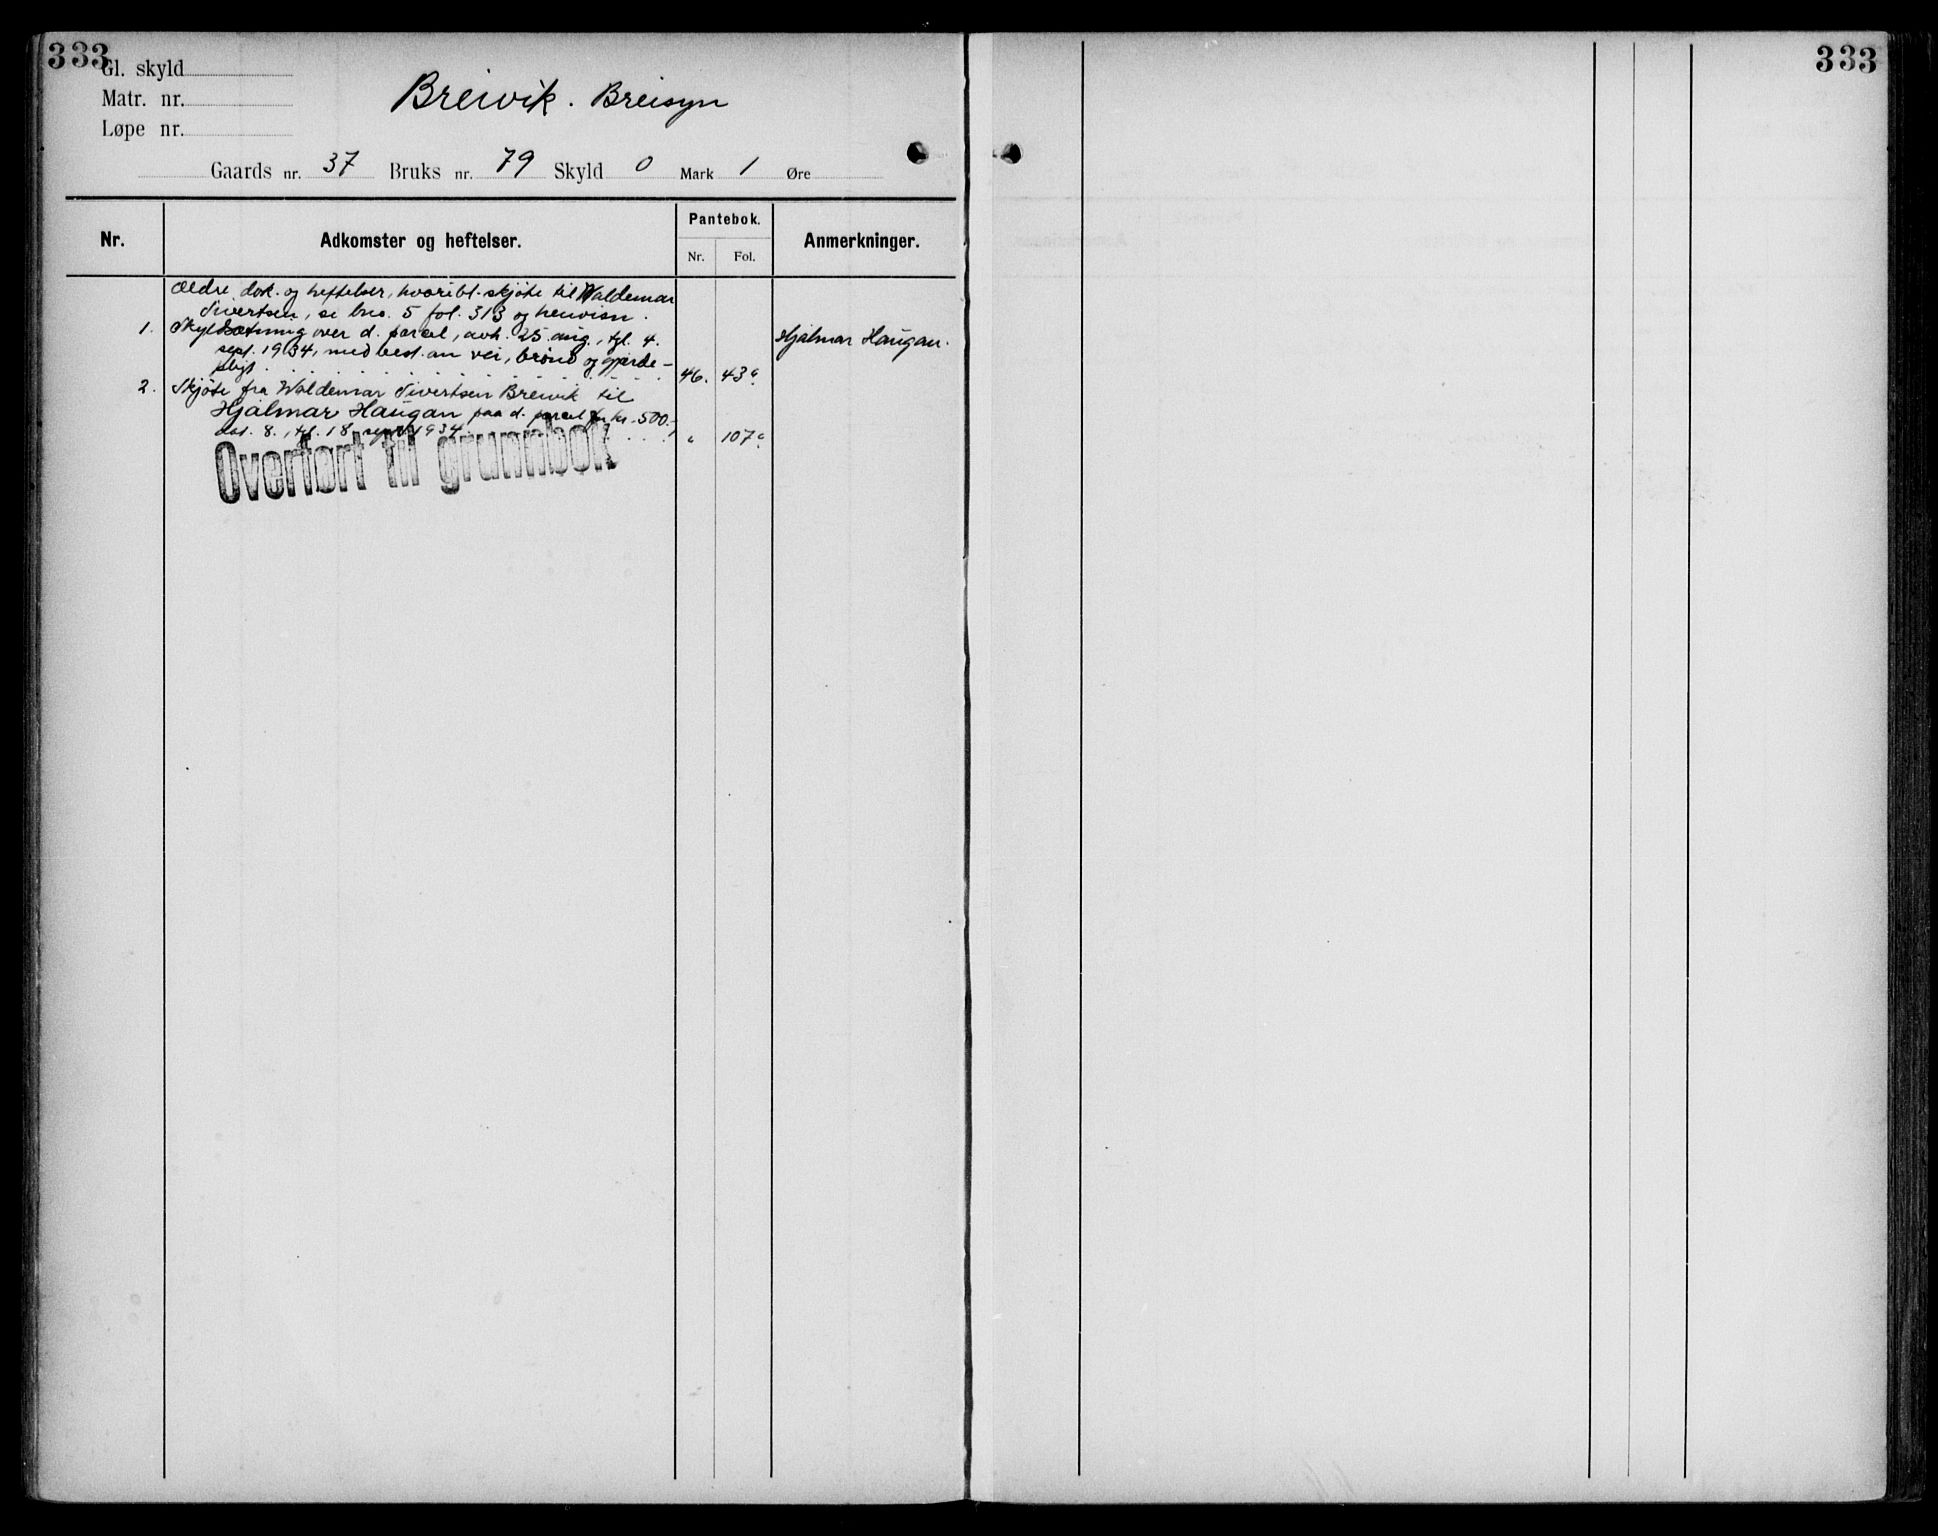 333
333
Gl. skyld
Matr. nr.
Løpe nr.
Breivik. Breisyn
Gaards nr. 37 Bruks nr. 79 Skyld 0 Mark 1 Øre
Nr.
Adkomster og heftelser.
Pantebok.
Nr. Fol.
Anmerkninger.
Ældre dok. og heftelser, hvoribl. skjøte til Waldemar
Sivertsen, se bno. 5 fol. 313 og henvisn.
1. Skyldsætning over d. parcel, avh. 25 aug., tgl. 4.
sept. 1934, med best. an vei, brønd og gjerde-
pligt. 46. 43a
Hjalmar Haugan.
2. Skjøte fra Waldemar Sivertsen Breivik til
Hjalmar Haugan paa d. parcel for kr. 500.-,
dat. 8., tgl. 18. sept. 1934. " 107a
Overført til grunnbok